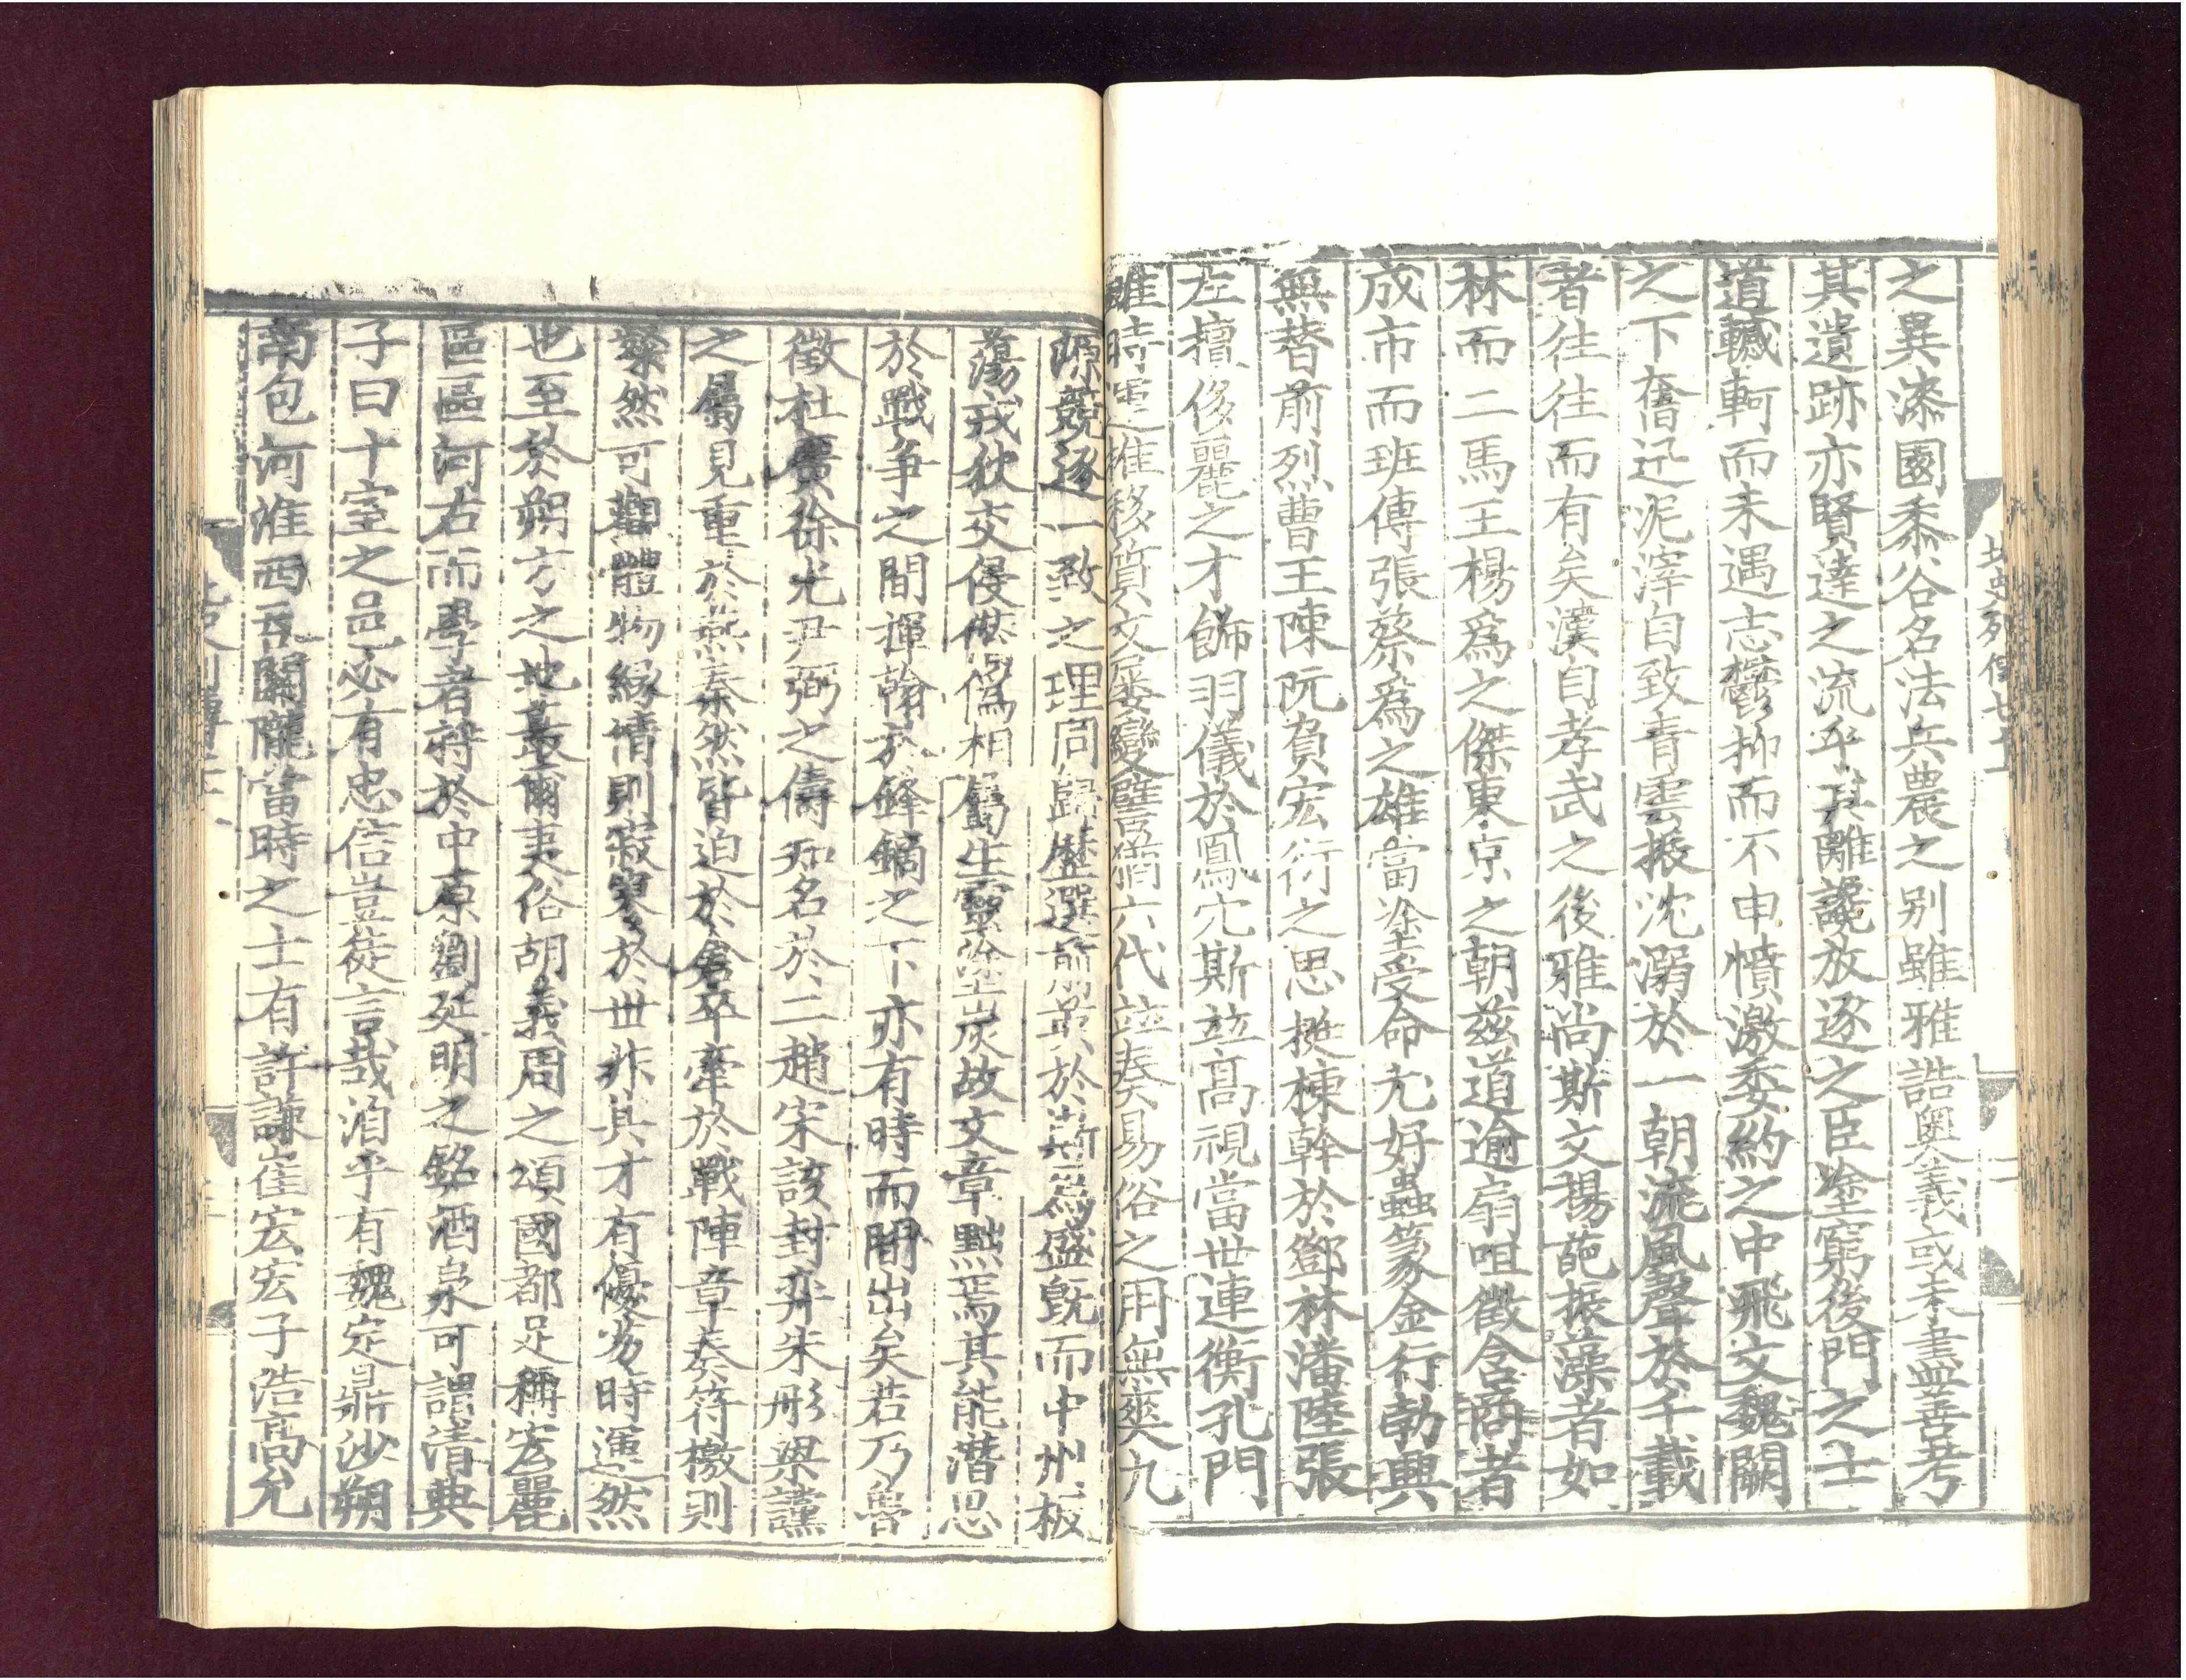 之異漆園黍谷名法兵農之別雖雅誥奧義或未盡善考
其遺跡亦賢達之流乎其離讒放逐之臣塗窮後門之士
道轗軻而未遇志鬱抑而不申憤激委約之中飛文魏闕
之下奮迅泥滓自致青雲振沈溺於一朝流風聲於千載
者往往而有矣漢自孝武之後雅尚斯文揚葩振藻者如
林而二馬王楊爲之傑東京之朝茲道逾扇咀徵含商者
成市而班傅張蔡爲之雄當塗受命尤好蟲篆金行勃興
無替前烈曹王陳阮負宏衍之思挺棟幹於鄧林潘陸張
左擅侈麗之才飾羽儀於鳳穴斯並高視當世連衡孔門
雖時運推移質文屢變譬猶六代並奏易俗之用無爽九
源競逐一致之理同歸歷選前英於斯爲盛既而中州板
蕩戎狄交侵僭僞相屬生靈塗炭故文章黜焉其能潛思
於戰爭之間揮翰於鋒鏑之下亦有時而間出矣若乃魯
徵杜廣徐光尹弼之儔知名於二趙宋該封弈朱彤梁讜
之屬見重於燕秦然皆迫於倉卒牽於戰陣章奏符檄則
粲然可觀體物緣情則寂寥於世非其才有優劣時運然
也至於朔方之地蕞爾夷俗胡義周之頌國都足稱宏麗
區區河右而學者埒於中原劉延明之銘酒泉可謂清典
子曰十室之邑必有忠信豈徒言哉洎乎有魏定鼎沙朔
南包河淮西吞關隴當時之士有許謙崔宏宏子浩高允